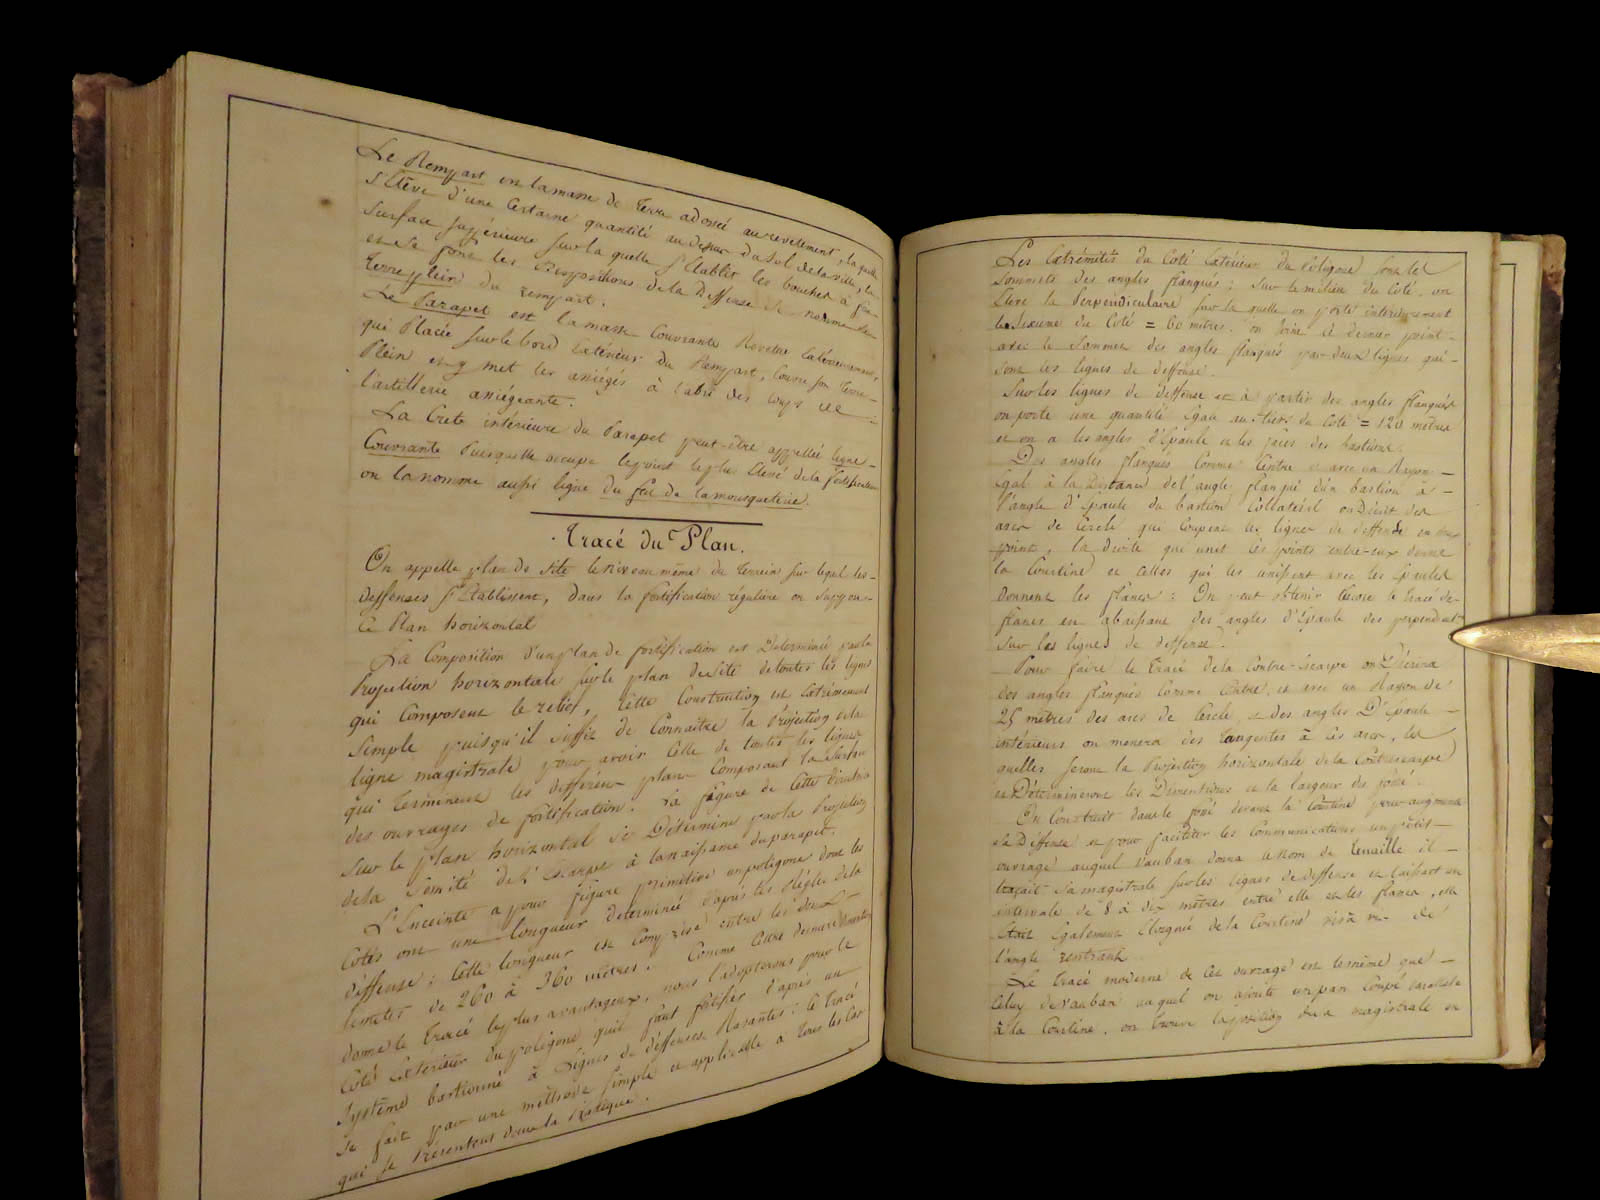 Le Rempart est la masse de terre adossée au revetement, la quelle
s'Elève d'une Certaine quantité au dessus du sol de la ville, la
surface supérieure sur la quelle s'Etablit les bouches à feu
et se font les Dispositions de la Deffense se nomme
terreplein du rempart.
Le Parapet est la masse Couvrante Revetue Extérieurement,
qui Placée sur le bord Extérieur du Rempart, Couvre son terre-
Plein et y met les assiégés à l'abri des coups de
l'artillerie assiégeante.
La Crete intérieure du Parapet peut-être appellée ligne-
Couvrante Puisqu'elle occupe le point le plus Elevé de la fortification
on la nomme aussi ligne du feu de la mousqueterie.
Tracé du Plan.
On appelle plan de site le niveau même du terrein sur lequel les-
deffenses s'Etablissent, dans la fortification régulière on suppose
Ce Plan horizontal
La Composition d'un plan de fortification est Déterminée par la
Projection horizontale sur le plan de site de toutes les lignes
qui Composent le relief, Cette Construction est Extrèmement
simple puisqu'il suffit de Connaître la Projection de la
ligne magistrale pour avoir Celle de toutes les lignes
qui terminent les différens plans Composant la surface
des ouvrages de fortification. La figure de Cette
sur le plan horizontal se Détermine par la Projection
de la Somité de l'Escarpe à la naissance du parapet.
L'Enceinte a pour figure primitive un poligone dont les
Cotés ont une longueur determinée d'après les Règles de la
déffense; Cette longueur est Comprise entre les deux
limites de 260 à 360 mètres. Comme Cette derniere
donne le Tracé le plus avantageux, nous l'adopterons pour le
Coté Extérieur du poligone qu'il faut fortifier d'après un
Système bastionné à Lignes de déffenses Rasantes; le Tracé
se fait par une méthode simple et applicable à tous les Cas
qui se Présentent dans la Pratique.
Les Extrémités du Coté Extérieur du Poligone sont les
Sommets des angles flanqués; Sur le milieu du Coté on
Eleve la Perpendiculaire sur la quelle on porte intérieurement
le Sixieme du Coté = 60 mètres. on joint Ce dernier point-
avec le Sommet des angles flanqués par deux lignes qui-
sont les lignes de deffense.
Sur les lignes de deffense et à partir des angles flanqués
on porte une quantité Egale au tiers du Coté = 120 mètres
et on a les angles d'Epaule et les faces des bastions.
Des angles flanqués Comme Centre et avec un Rayon-
Egal à la Distance de l'angle flanqué d'un bastion à-
l'angle d'Epaule du bastion Collatéral on Décrit des
arcs de Cercle qui Coupent les lignes de deffense en deux
points, la droite qui unit Ces points entre-eux donne
la Courtine et Celles qui les unissent avec les Epaules
donnent les flancs: On peut obtenir encore le tracé des
flancs en abaissant des angles d'Epaule des perpendiculaires
sur les lignes de deffense.
Pour faire le Tracé de la Contre-Escarpe on Décrira
des angles flanqués Comme Centre, et avec un Rayon de
25 mètres des arcs de Cercle, et des angles D'Epaule-
intérieurs on menera des tangentes à Ces arcs, les
quelles seront la Projection horizontale de la Contrescarpe
et Détermineront les Dimentions et la largeur du fossé.
On Construit dans le fossé devant la Courtine pour augmenter
sa Déffense et pour faciliter les Communications un petit-
ouvrage auquel Vauban donna le Nom de Tenaille il-
traçait sa magistrale sur les lignes de deffense en laissant un
intervale de 8 à dix mètres entre elle et les flancs, elle
Etait Egalement Eloignée de la Courtine vis à vis de
l'angle rentrant.
Le Tracé moderne de Cet ouvrage est le même que-
Celuy de Vauban auquel on ajoute un pan Coupé parallele
à la Courtine. on trouve la position de sa magistrale en